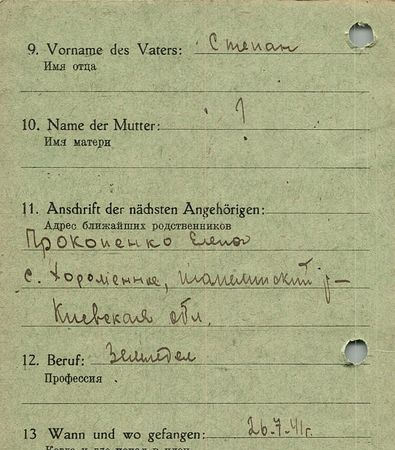 9. Vorname des Vaters: Степан
Имя отца
10. Name der Mutter: ?
Имя матери
11. Anschrift der nächsten Angehörigen:
Адрес ближайших родственников
Прокопенко Елена
с. р-
Киевская обл.
12. Beruf: Земледел
Профессия .
13 Wann und wo gefangen: 26.7.41г.
Когда и где попал в плен